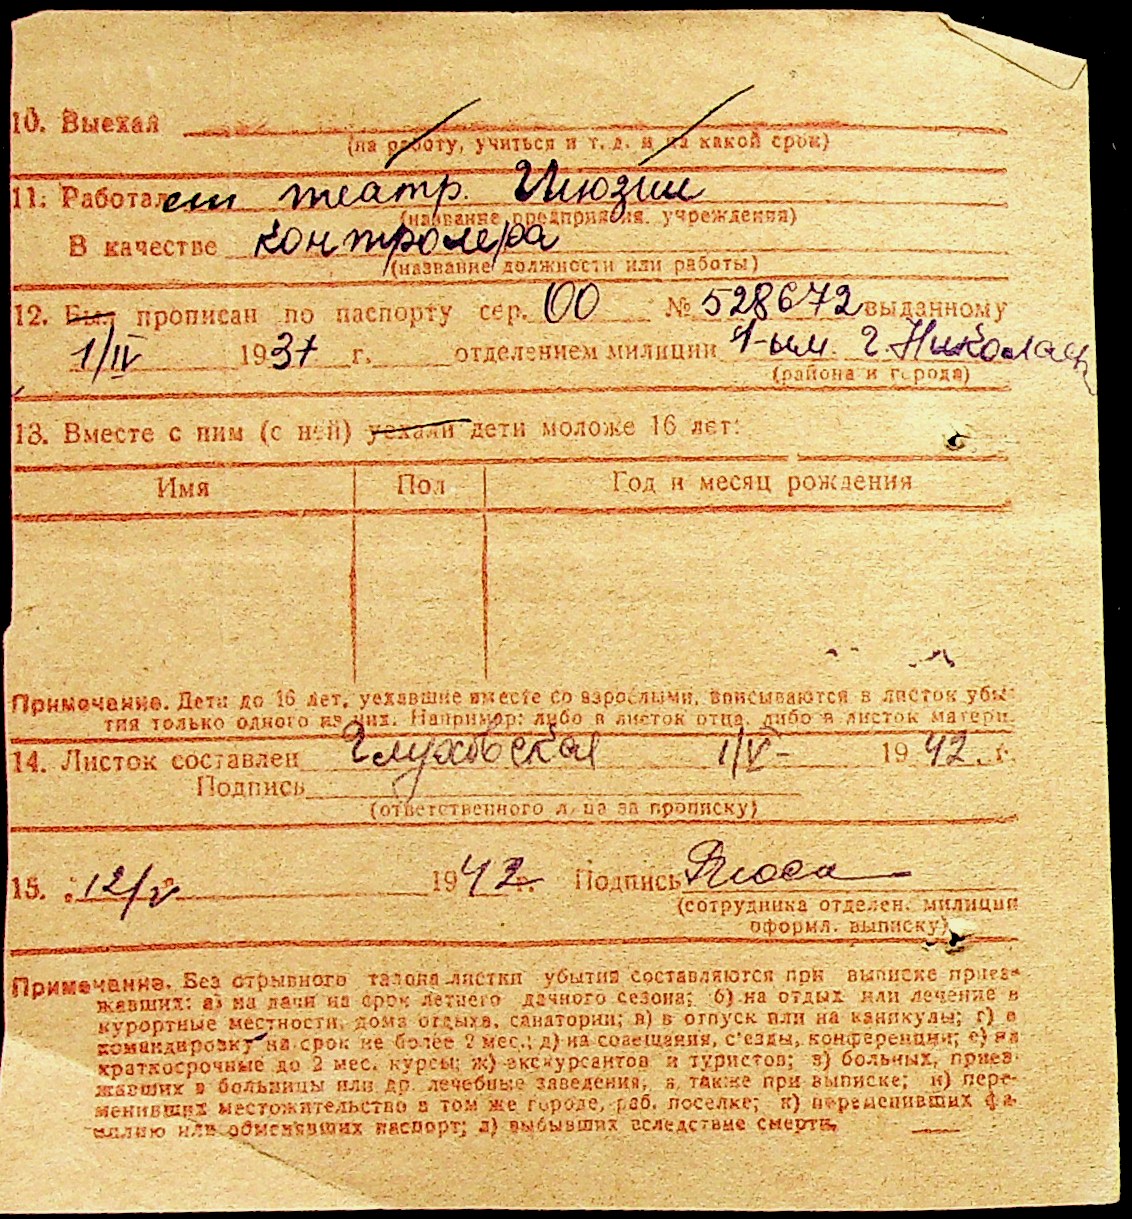 10. Выехал
(на работу, учиться и т. д. и на какой срок)
11. Работает театр. Иллюзии
(название предприятия, учреждения)
В качестве контролера
(название должности или работы)
12. Был прописан по паспорту сер. ОО № 528672 выданному
1/IV 1937 г. отделением милиции 1-ым. г. Николаев
(района и города)
13. Вместе с ним (с ней) уехали дети моложе 16 лет:
Имя Пол Год и месяц рождения
Примечание. Дети до 16 лет, уехавшие вместе со взрослыми, вписываются в листок убы-
тия только одного из них. Например: либо в листок отца, либо в листок матери.
14. Листок составлен Глуховская 1/V- 1942 г.
Подпись
(ответственного лица за прописку)
15. 12/V 1942 г. Подпись
(сотрудника отделен. милиции
оформл. выписку)
Примечание. Без отрывного талона листки убытия составляются при выписке приез-
жавших: а) на дачи на срок летнего дачного сезона; б) на отдых или лечение в
курортные местности, дома отдыха, санатории; в) в отпуск или на каникулы; г) в
командировку на срок не более 2 мес.; д) на совещания, съезды, конференции; е) на
краткосрочные до 2 мес. курсы; ж) экскурсантов и туристов; з) больных, приез-
жавших в больницы или др. лечебные заведения, а также при выписке; и) пере-
менивших местожительство в том же городе, раб. поселке; к) переменивших фа-
милию или обменявших паспорт; л) выбывших вследствие смерти.